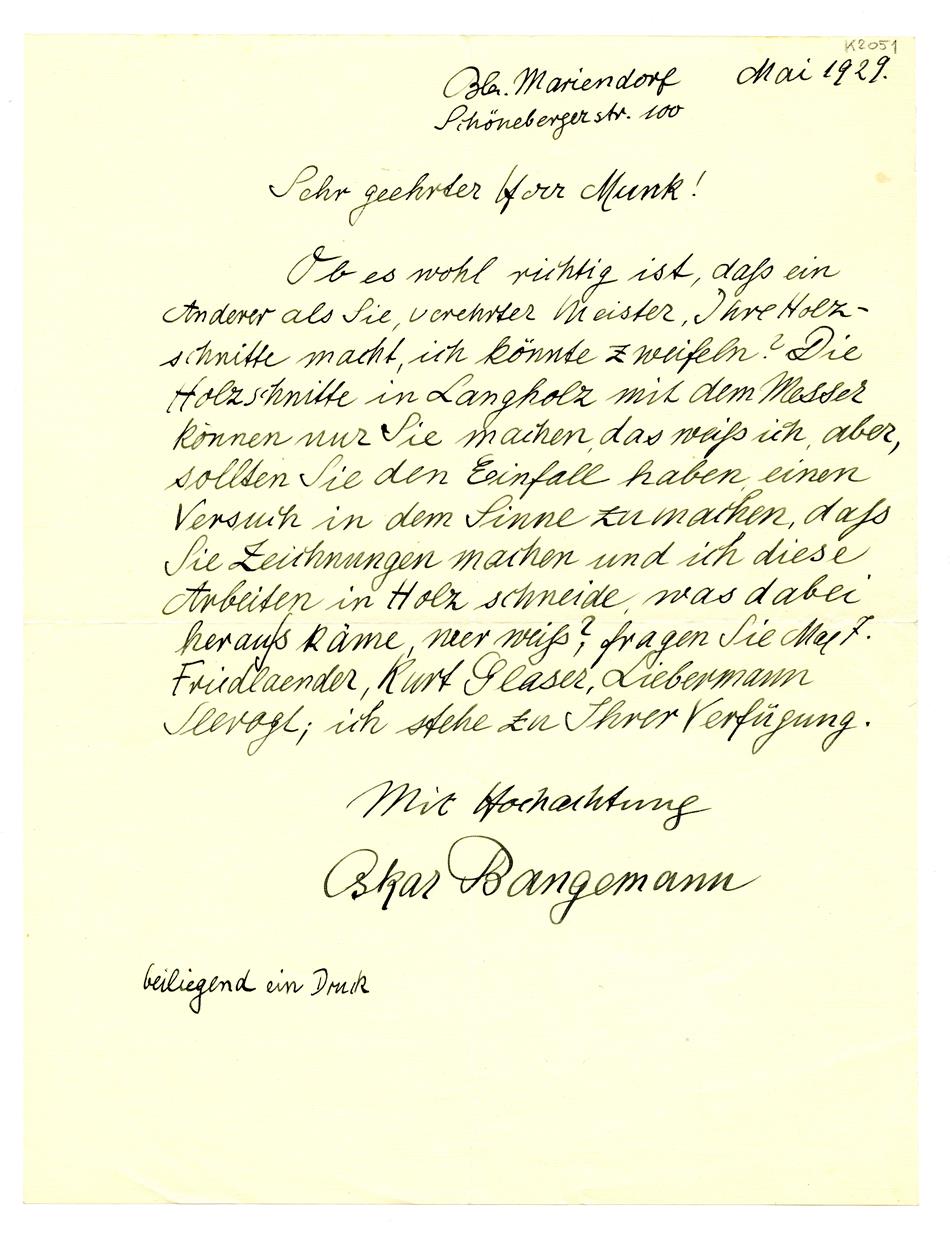 K2051
Bln. Mariendorf Mai 1929.
Schönebergerstr. 100
Sehr geehrter Herr Munk!
Ob es wohl richtig ist, daß ein
Anderer als Sie, verehrter Meister, Ihre Holz-
schnitte macht, ich könnte zweifeln? Die
Holzschnitte in Langholz mit dem Messer
können nur Sie machen, das weiß ich, aber,
sollten Sie den Einfall haben, einen
Versuch in dem Sinne zu machen, daß
Sie Zeichnungen machen und ich diese
Arbeiten in Holz schneide, was dabei
heraus käme, wer weiß?, fragen Sie Max J.
Friedlaender, Kurt Glaser, Liebermann
Slevogt; ich stehe zu Ihrer Verfügung.
Mit Hochachtung
Oskar Bangemann
beiliegend ein Druck